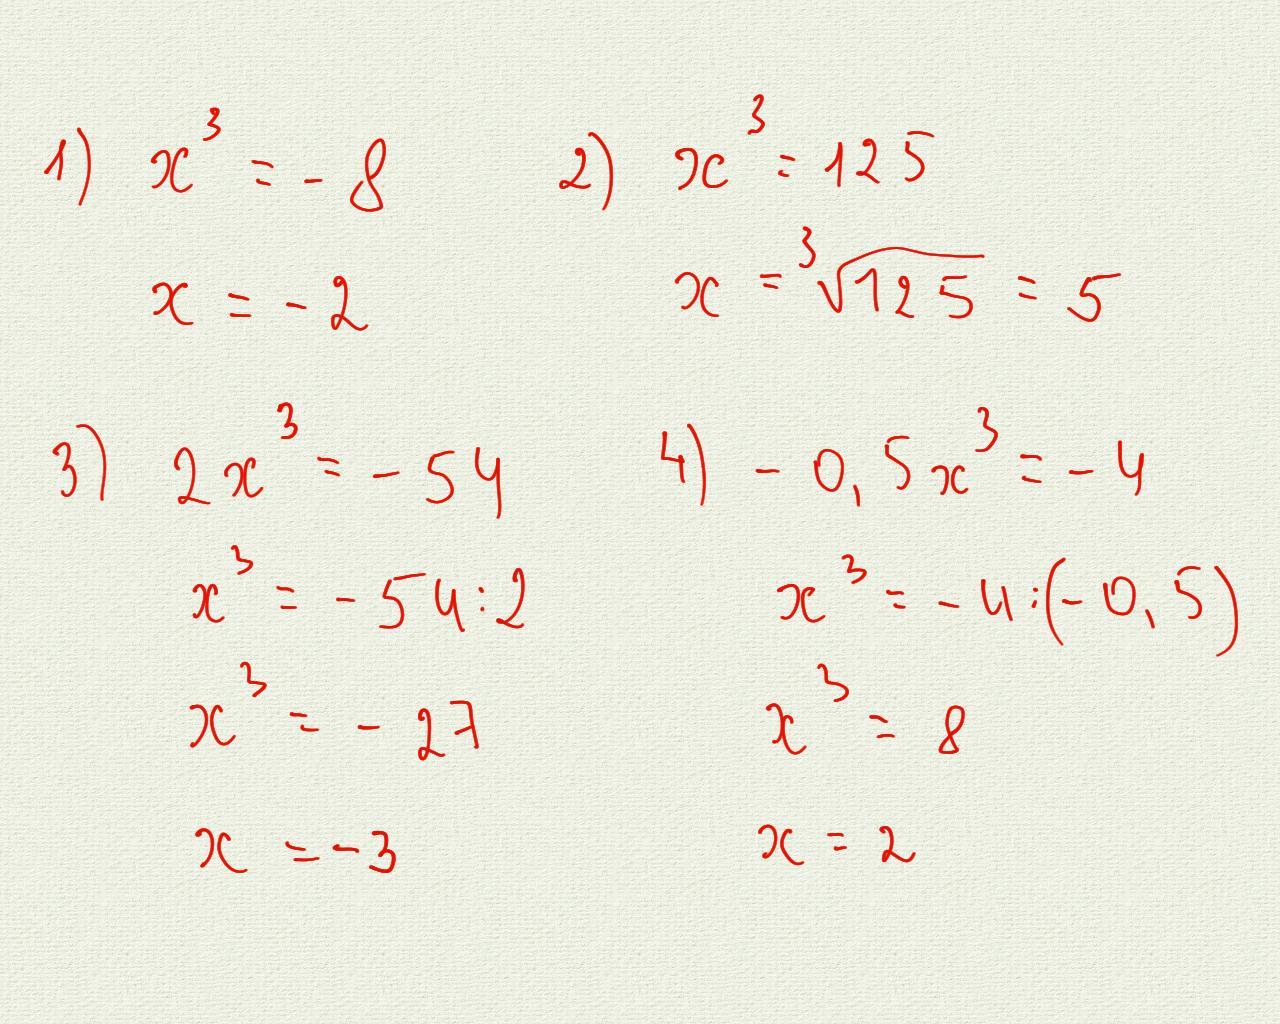 1) x³ = - 8
x = - 2
2) x³ = 125
x = ³√125 = 5
3) 2x³ = - 54
x³ = - 54 : 2
x³ = - 27
x = - 3
4) - 0,5x³ = - 4
x³ = - 4 : (- 0,5)
x³ = 8
x = 2